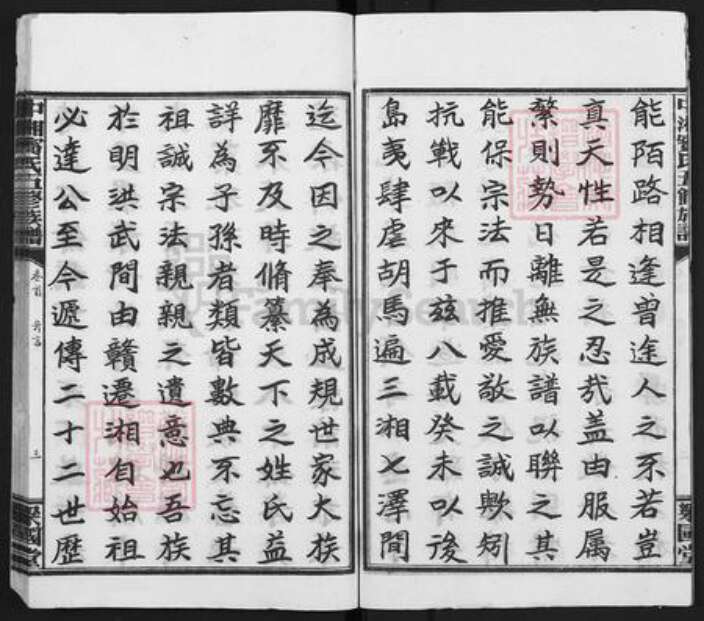 能陌路相逢曾途人之不若豈
真天性若是之忍㢤盖由服属
繁則勢日離無族譜以聯之其
能保宗法而推愛敬之誠歟矧
抗戰以來于兹八載癸未以後
島夷肆虐胡馬遍三湘七澤間
聚國堂
迄今因之奉為成規世家大族
靡不及時脩纂天下之姓氏益
詳為子孫者類皆數典不忘其
祖誠宗法親親之遺意也吾族
於明洪武間由贛遷湘自始祖
必達公至今遞傳二十二世歷
卷首
三
聚國堂
FamilySearch